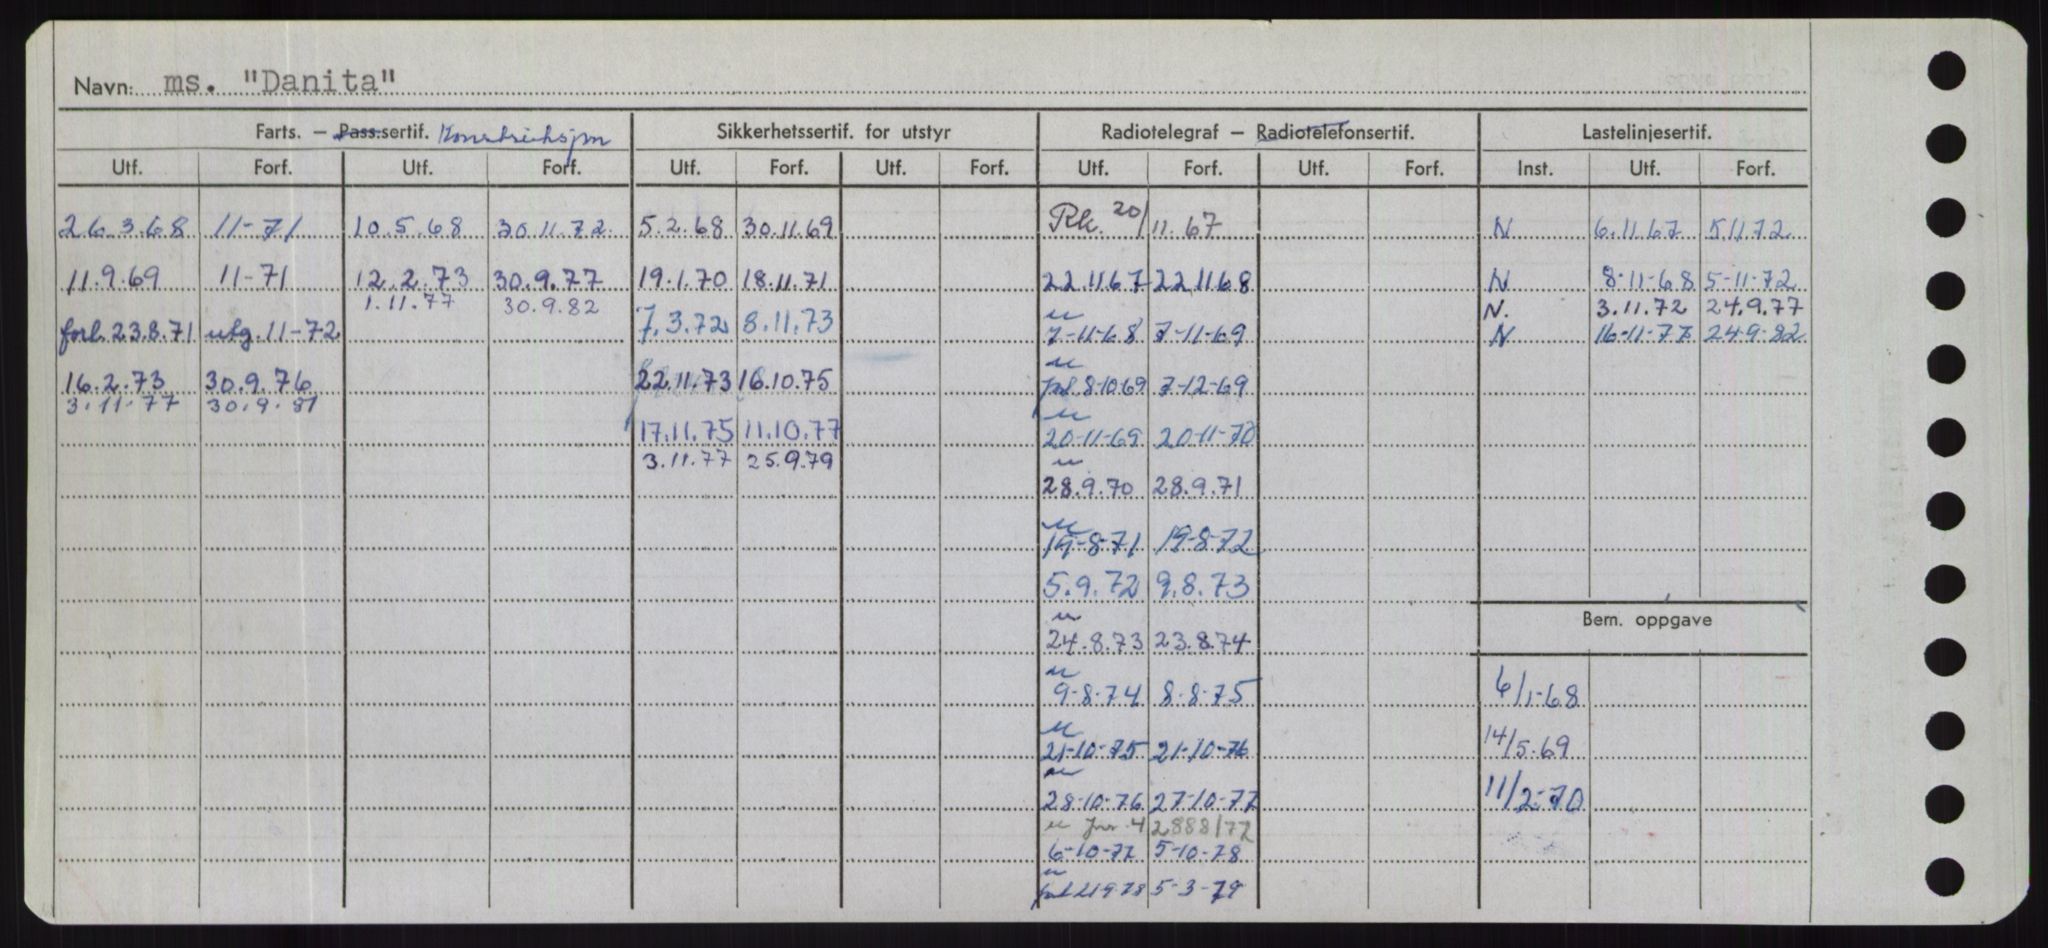 Navn: ms. "Danita"
Farts. — Pass.sertif. Sikkerhetssertif. for utstyr Radiotelegraf — Radiotelefonsertif. Lastelinjesertif.
Utf. Forf. Utf. Forf. Utf. Forf. Utf. Forf. Utf. Forf. Utf. Forf. Inst. Utf. Forf.
26.3.68 11-71 10.5.68 30.11.72. 5.2.68 30.11.69 Rk. 20/11.67 N 6.11.67 5.11.72
11.9.69 11-71 12.2.73 30.9.77 19.1.70 18.11.71 22.11.67 22.11.68 N 8-11-68 5-11-72
1.11.77 30.9.82 N. 3.11.72 24.9.77
forl. 23.8.71 utg. 11-72 7.3.72 8.11.73 7-11-68 7-11-69 N 16-11-77 24-9-82
16.2.73 30.9.76 22.11.73 16.10.75 8-10-69 7-12-69
3.11.77 30.9.81
17.11.75 11.10.77 20-11-69 20-11-70
3.11.77 25.9.79
28.9.70 28.9.71
19-8-71 19-8-72
5.9.72 9.8.73
Bem. oppgave
24.8.73 23.8.74
9-8-74 8-8-75 6/1-68
21-10-75 21-10-76 14/5.69
28-10-76 27-10-77 11/2-70
6-10-77 5-10-78
5-3-79